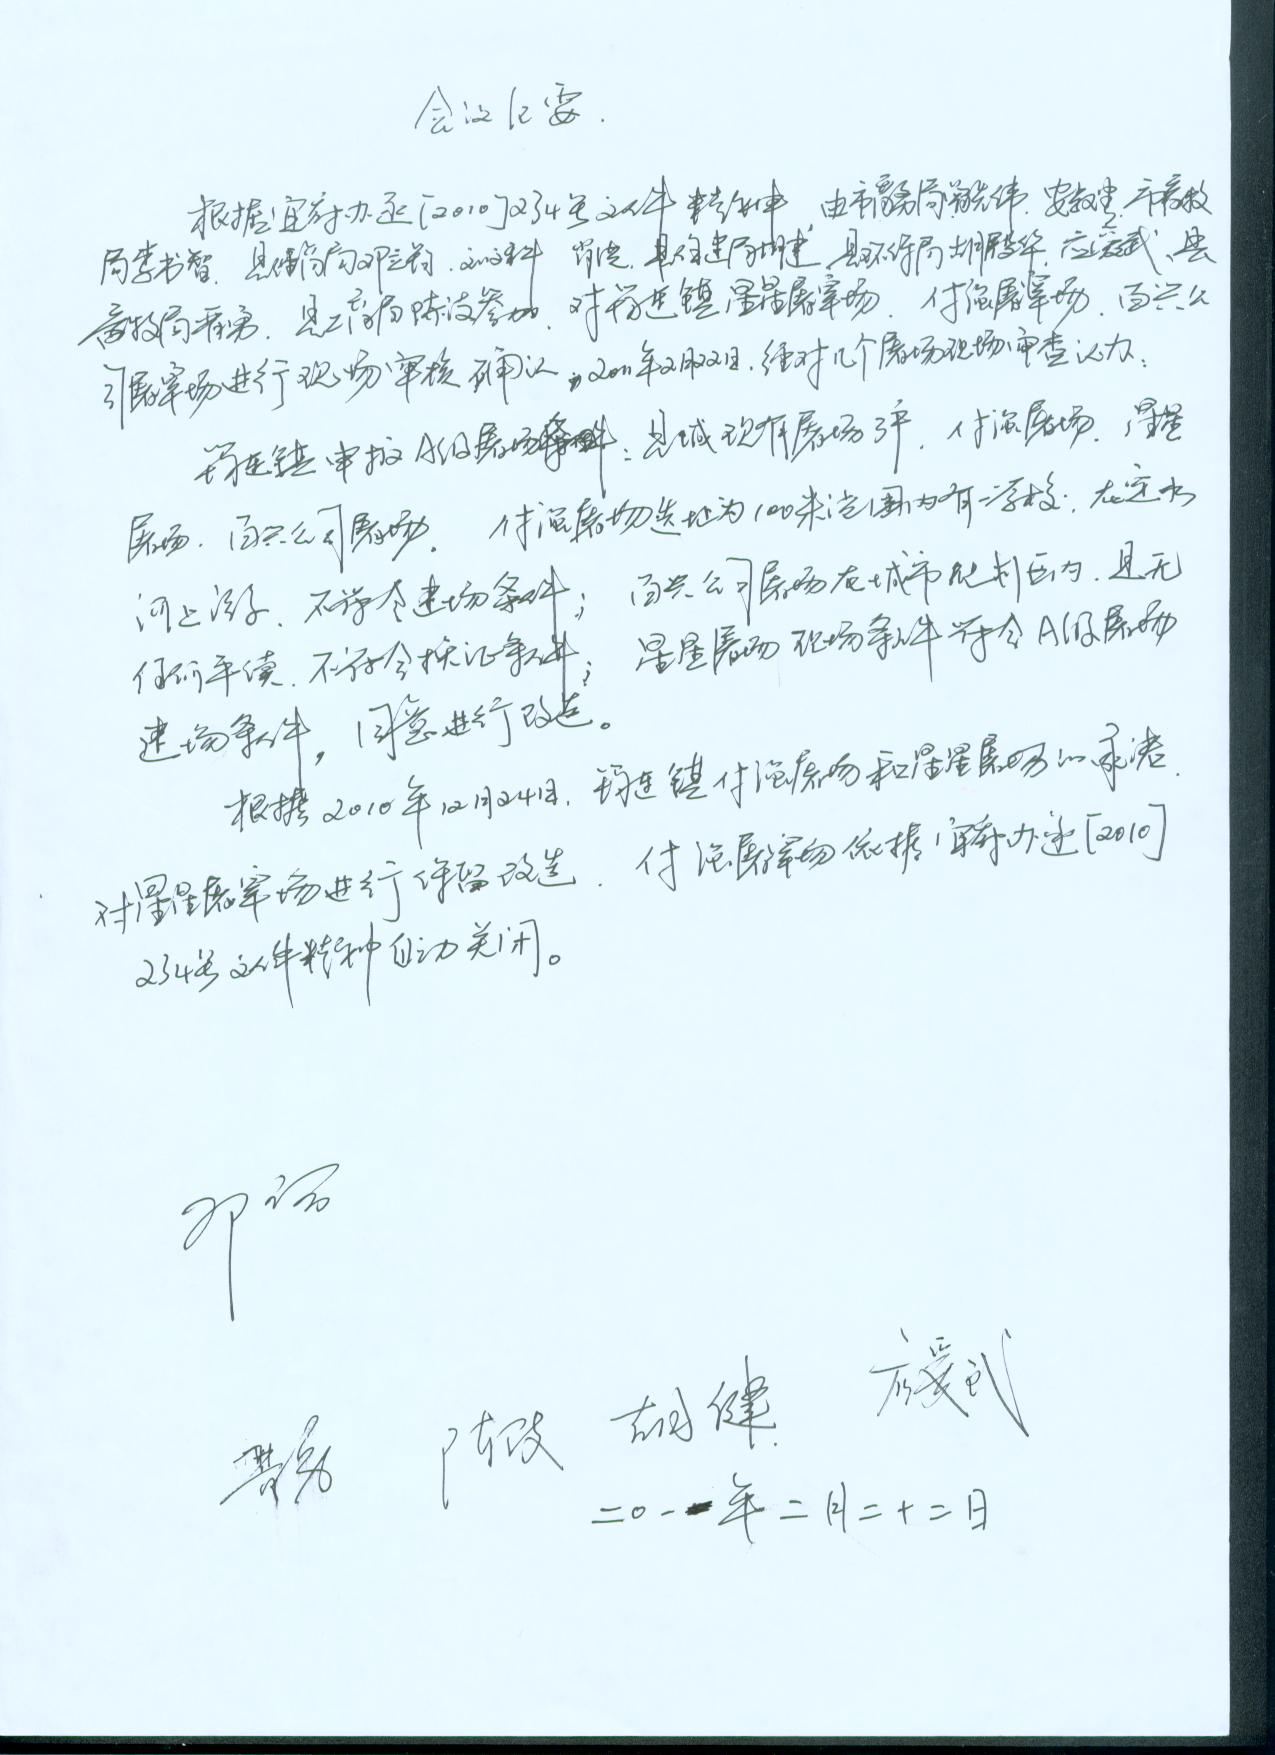 会议纪要.
根据宜府办函[2010]234号文件精神,由市商务局 伟、安 、市畜牧
局李书智、县经商局邓 、刘 科、肖 、县住建局胡建、县环保局胡殿华、应爱武、县
畜牧局 勇、县工商局陈波参加,对筠连镇星星屠宰场、付强屠宰场、百兴公
司屠宰场进行现场审核确认,2011年2月22日,经对几个屠场现场审查认为:
筠连镇申报A级屠场条件:县城现有屠场3户,付强屠场、星星
屠场、百兴公司屠场。付强屠场选址为100米范围内有一学校,在定水
河上游,不符合建场条件;百兴公司屠场在城市规划区内,且无
任何手续,不符合换证条件;星星屠场现场条件符合A级屠场
建场条件,同意进行改造。
根据2010年12月24日,筠连镇付强屠场和星星屠场的承诺,
对星星屠宰场进行保留改造,付强屠宰场依据宜府办函[2010]
234号文件精神自动关闭。
邓
应爱武
勇 陈波 胡健
二〇一一年二月二十二日